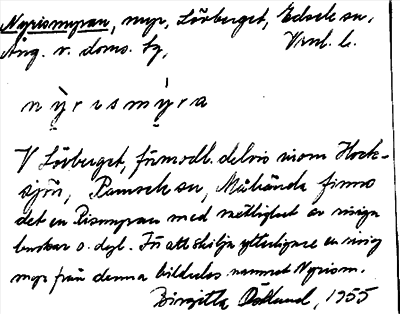 Nyrismyran, myr, Lövberget, Edsele sn,
Ång. v. doms. tg, Vnl. l.
nỳrismýra
V Lövberget, förmodl. delvis inom Hock-
sjön, Ramsele sn, Måhända finns
det en Rismyran med möjlighet av risiga
buskar o. dyl. För att skilja ytterligare en risig
myr från denna bildades namnet Nyrism.
Birgitta Östlund, 1955